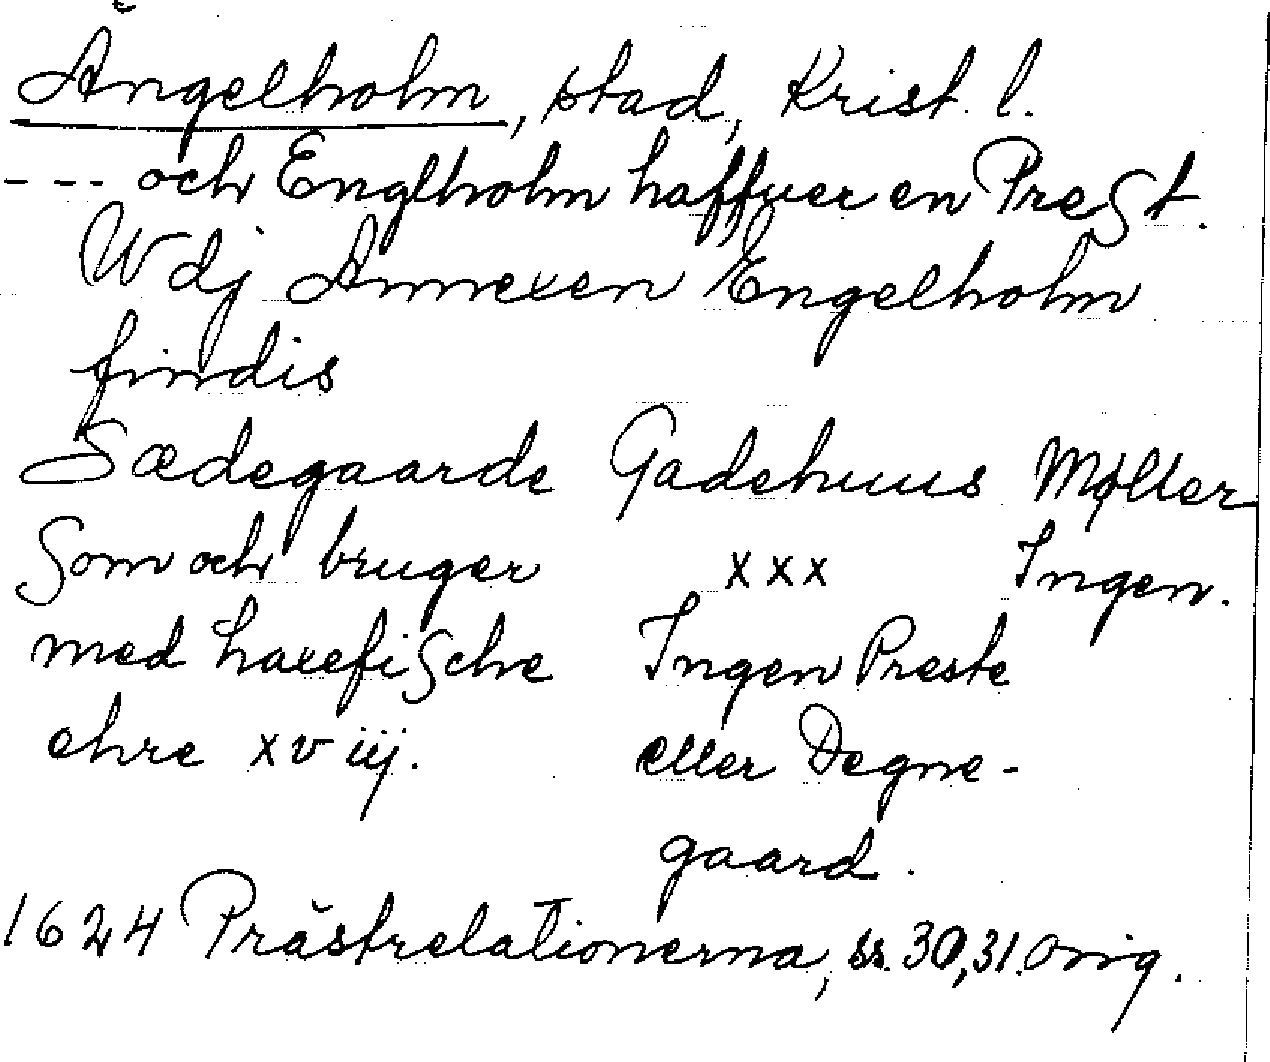 Ängelholm, stad, Krist. l.
--- och Englholm haffuer en Prest.
Wdj Annexen Engelholm
findis
Sædegaarde Gadehuus Møller
Som och bruger xxx Ingen.
med haxefische Ingen Preste
ehre xviij. eller Degne-
gaard.
1624 Prästrelationerna, ss. 30, 31. Orig.